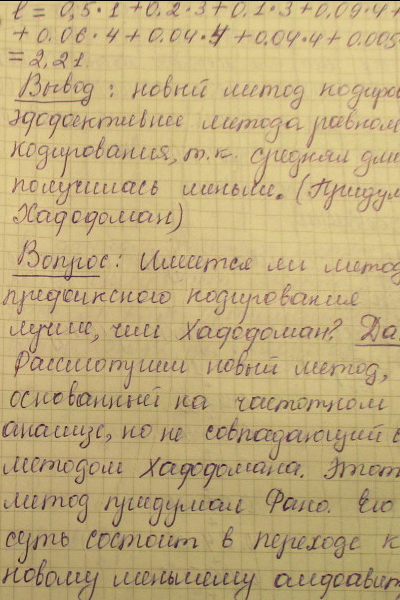 ℓ = 0,5·1 + 0.2·3 + 0,1·3 + 0,09·4 +
+ 0.06·4 + 0.04·4 + 0.04·4 + 0.005
= 2,21
Вывод: новый метод кодиров
эффективнее метода равном
кодирования, т.к. средняя дли
получилась меньше. (Придум
Хаффоман)
Вопрос: Имеется ли метод
префиксного кодирования
лучше, чем Хаффоман? Да.
Рассмотрим новый метод,
основанный на частотном
анализе, но не совпадающий с
методом Хаффомана. Этот
метод придумал Фано. Его
суть состоит в переходе к
новому меньшему алфавит